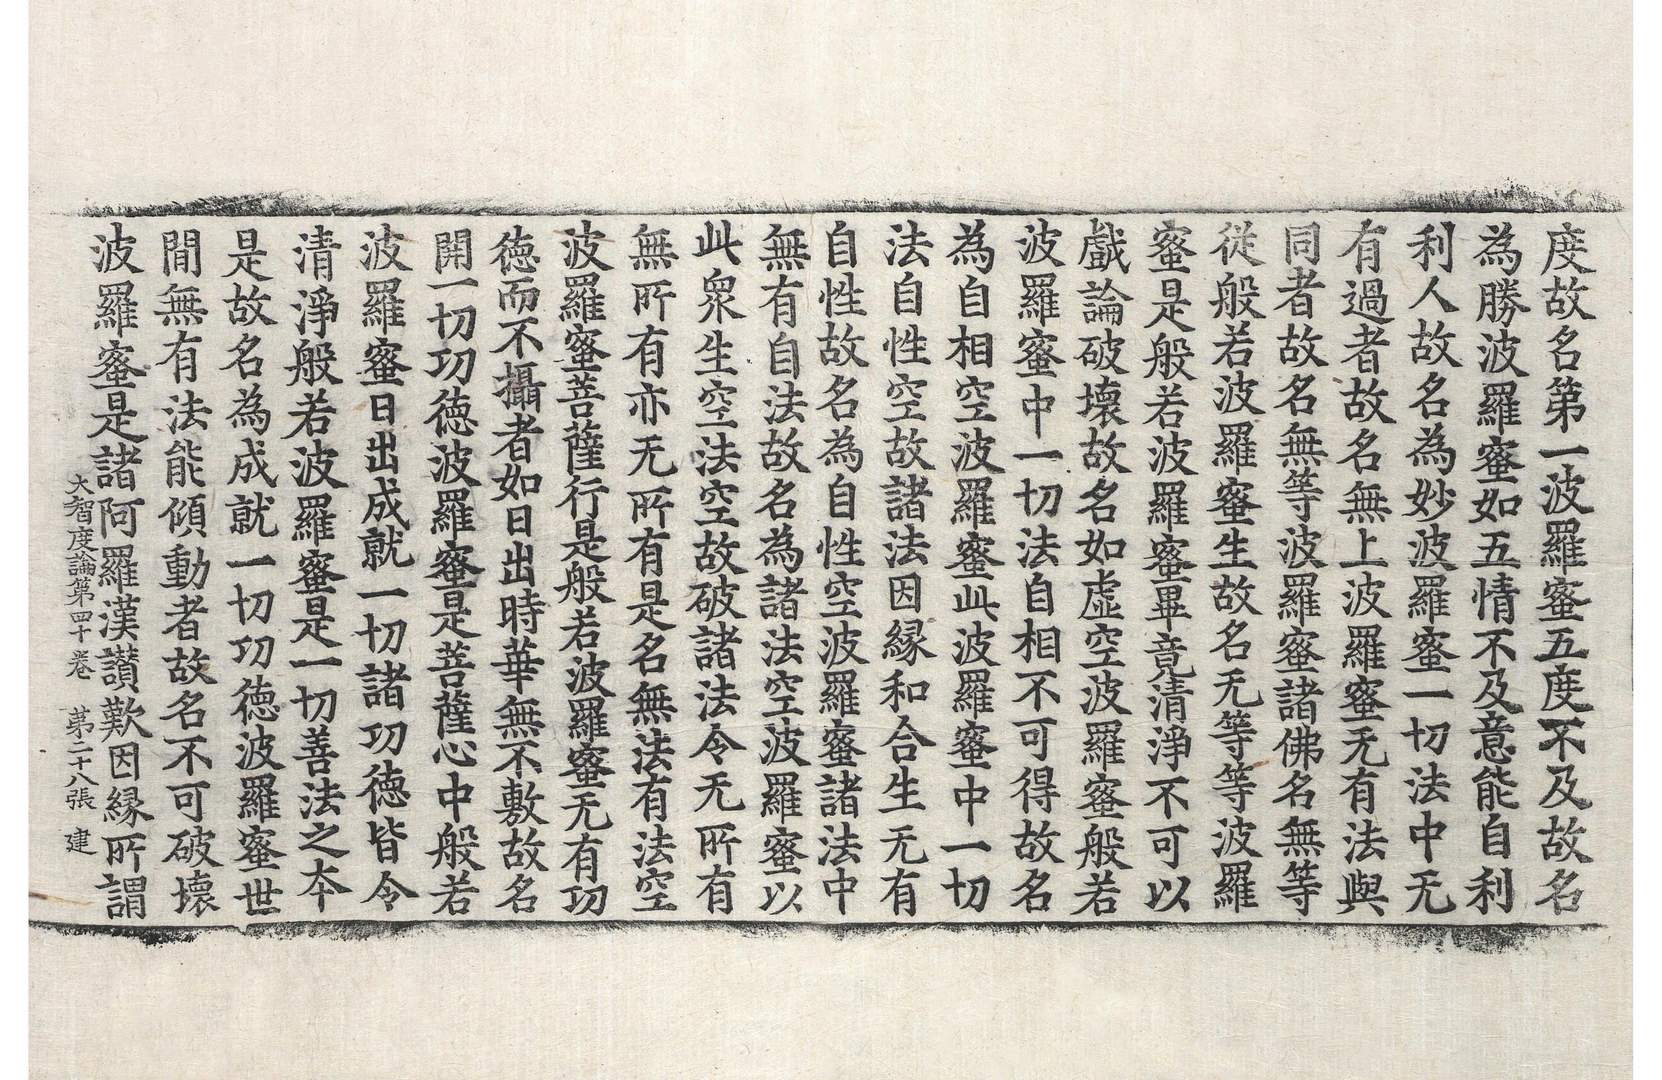 度故名第一波羅蜜五度不及故名
為勝波羅蜜如五情不及意能自利
利人故名為妙波羅蜜一切法中无
有過者故名無上波羅蜜无有法與
同者故名無等波羅蜜諸佛名無等
従般若波羅蜜生故名无等等波羅
蜜是般若波羅蜜畢竟清淨不可以
戲論破壞故名如虛空波羅蜜般若
波羅蜜中一切法自相不可得故名
為自相空波羅蜜此波羅蜜中一切
法自性空故諸法因縁和合生无有
自性故名為自性空波羅蜜諸法中
無有自法故名為諸法空波羅蜜以
此衆生空法空故破諸法令无所有
無所有亦无所有是名無法有法空
波羅蜜菩薩行是般若波羅蜜无有功
徳而不攝者如日出時華無不敷故名
開一切功徳波羅蜜是菩薩心中般若
波羅蜜日出成就一切諸功徳皆令
清淨般若波羅蜜是一切善法之本
是故名為成就一切功徳波羅蜜世
間無有法能傾動者故名不可破壞
波羅蜜是諸阿羅漢讚歎因縁所謂
大智度論第四十卷　第二十八張　建